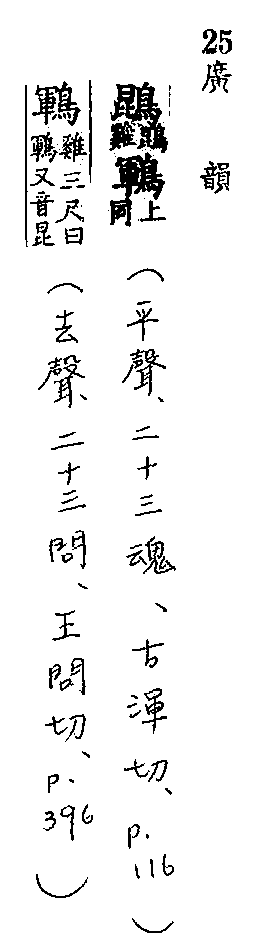 25廣韻
鵾鵾雞鶤上同（平聲、二十三魂、古渾切、p.116）
鶤雞三尺曰鶤又音昆（去聲、二十三問、王問切、p.396）